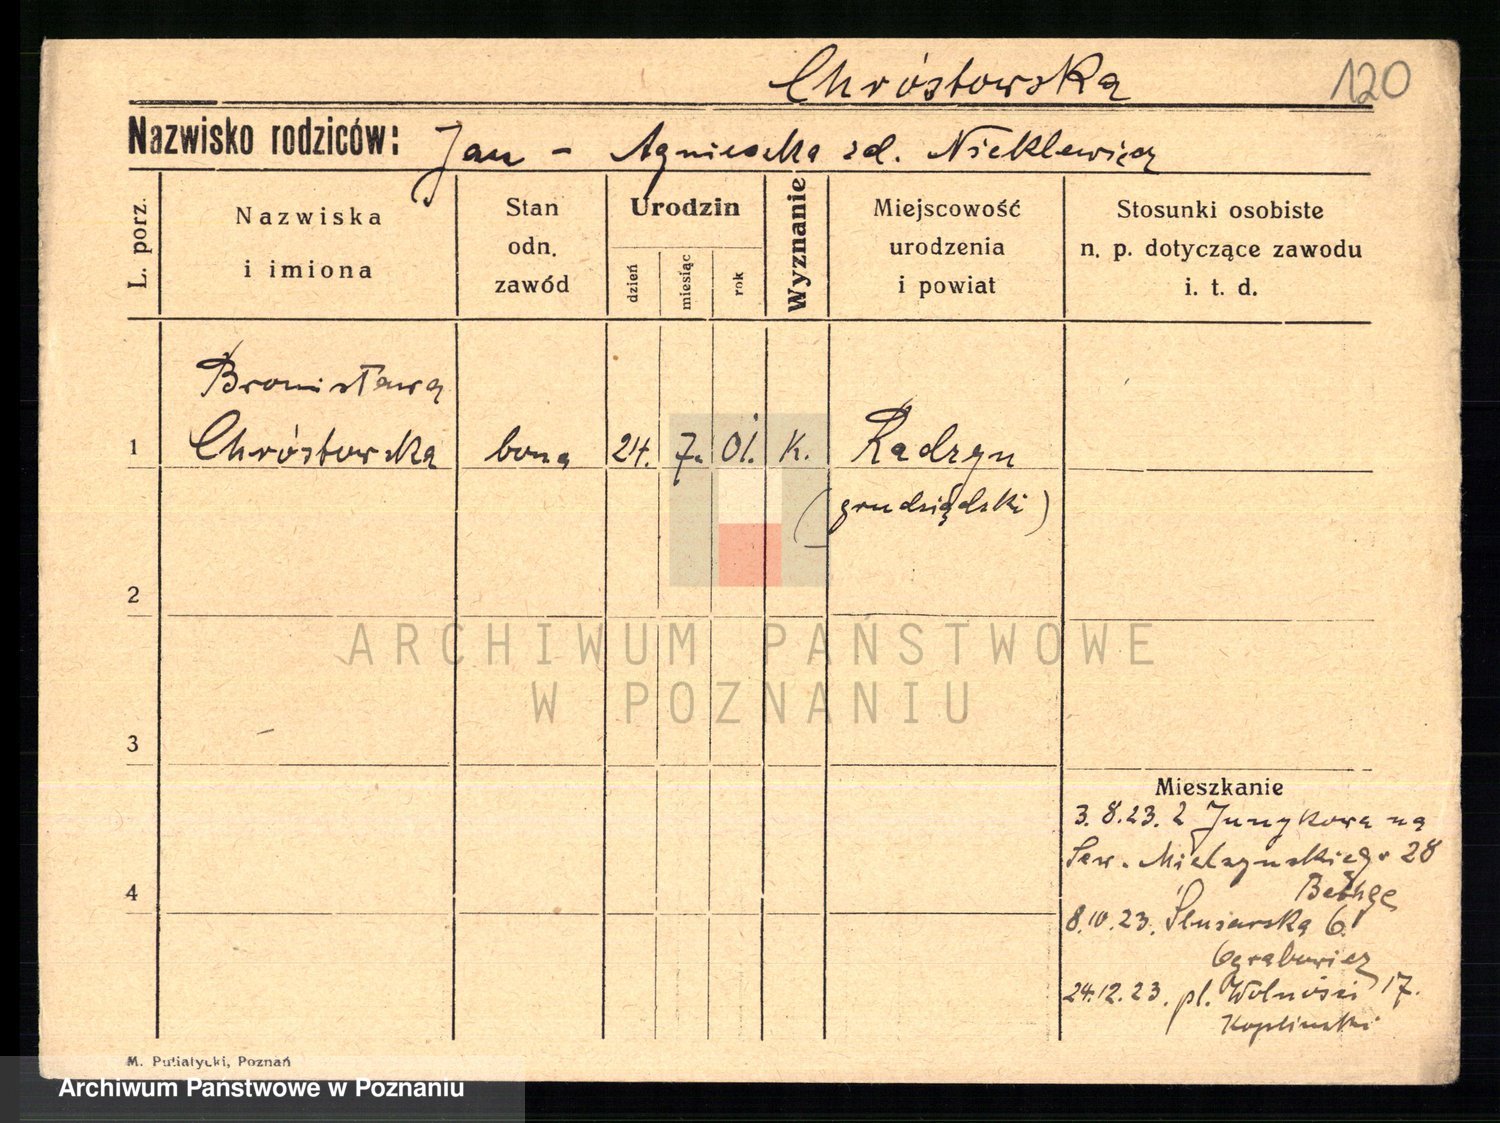 Chróstowska 120
Nazwisko rodziców: Jan - Agnieszka zd. Nieklewicz
L. porz.
Nazwiska
i imiona
Stan
odn.
zawód
Urodzin
dzień
miesiąc
rok
Wyznanie
Miejscowość
urodzenia
i powiat
Stosunki osobiste
n. p. dotyczące zawodu
i. t. d.
Bronisława
1 Chróstowska bona 24. 7. 01. K. Radzyn
(grudziądzki)
2
ARCHIWUM PAŃSTWOWE
W POZNANIU
3
Mieszkanie
3.8.23. z Junykowa na
Sew. Mielzynskiego 28
4
Bethge
8.10.23. Ślusarska 6
Ograbowicz
24.12.23. pl. Wolności 17.
Koplinski
M. Putiatycki, Poznań
Archiwum Państwowe w Poznaniu